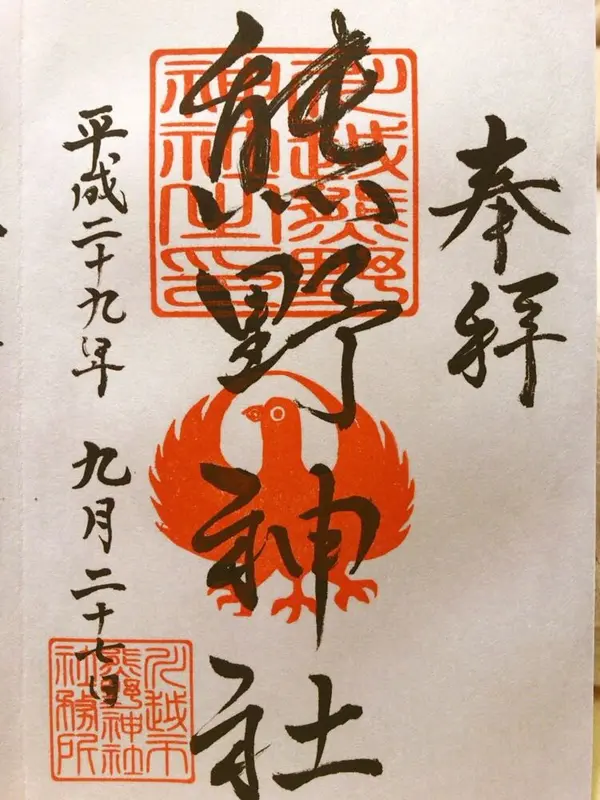 奉拝
川越熊野
神社之印
熊野神社
平成二十九年 九月二十七日
川越市
熊野神社
社務所